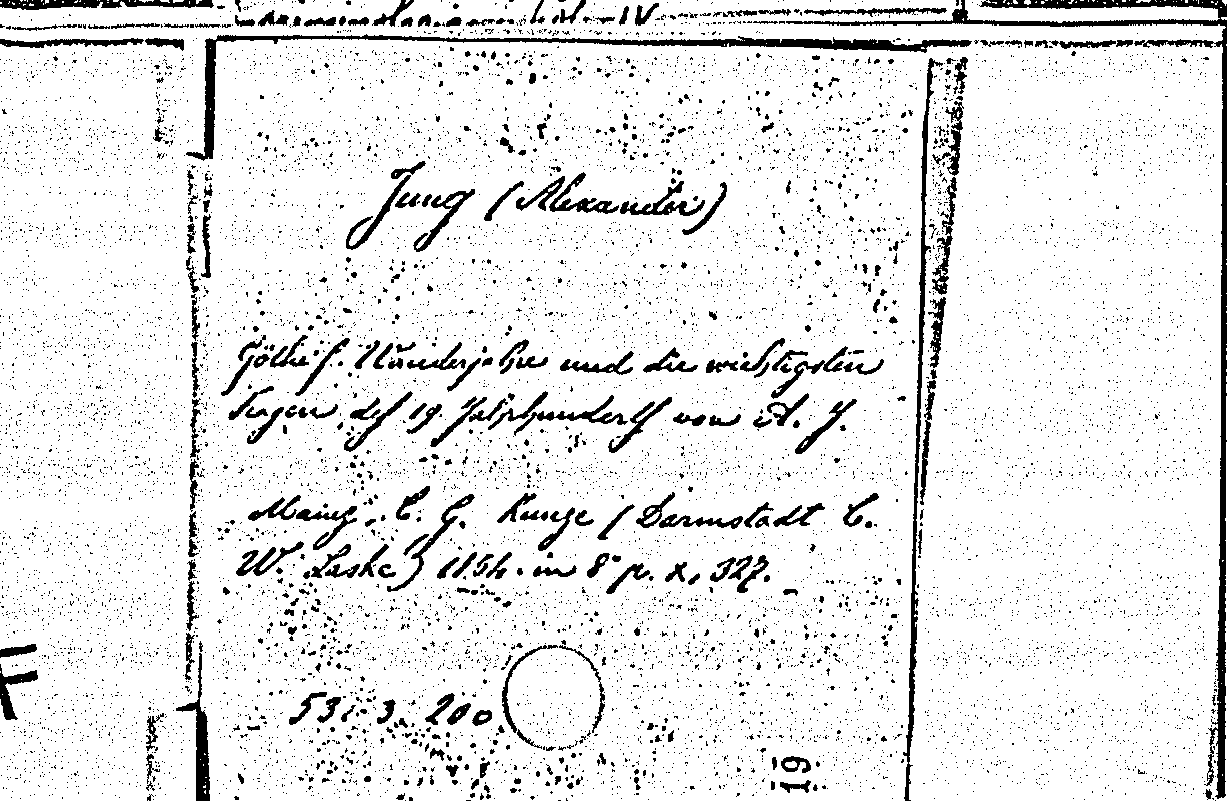 IV
Jung (Alexander)
Göthe's Wanderjahre und die wichtigsten
Fragen des 19. Jahrhunderts von A. J.
Mainz, C. G. Kunze (Darmstadt C.
W. Leske) 1854. in 8° p. X, 327.
531 3 200
19
F